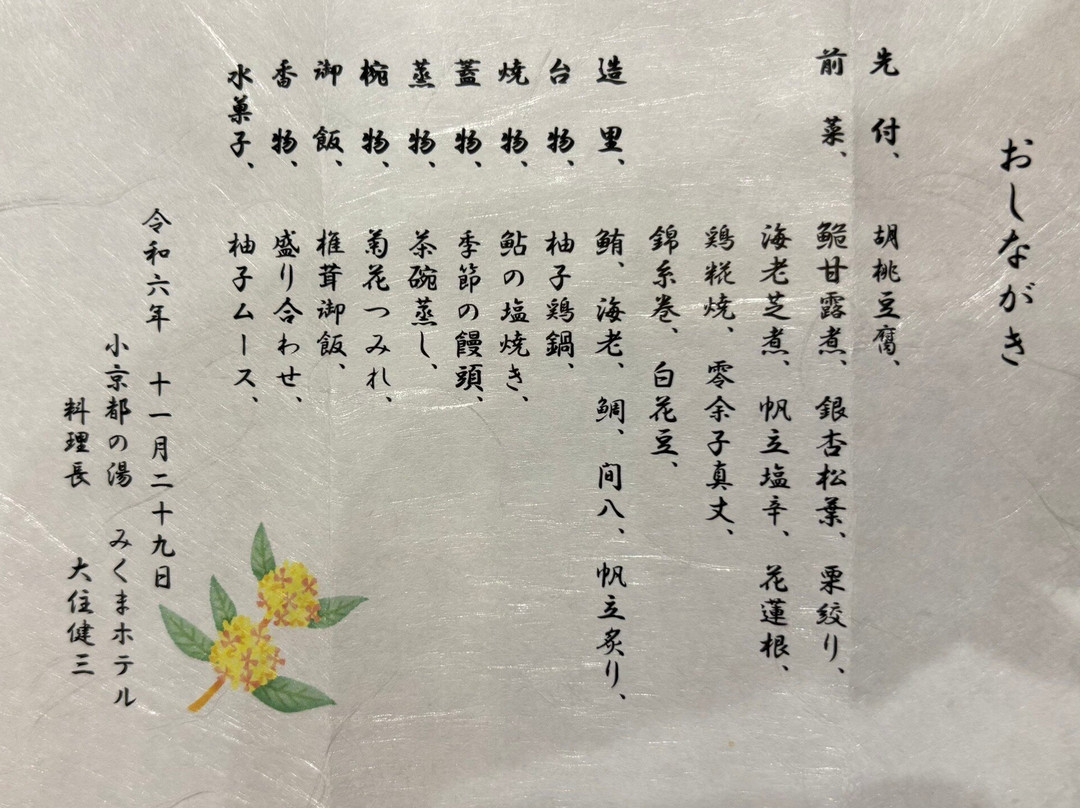 おしながき
先付、 胡桃豆腐、
前菜、 鮠甘露煮、 銀杏松葉、 栗絞り、
海老芝煮、 帆立塩辛、 花蓮根、
鶏糀焼、 零余子真丈、
錦糸巻、 白花豆、
造里、 鮪、海老、 鯛、 间八、 帆立炙り、
台物、 柚子鶏鍋、
焼物、 鮎の塩焼き、
蓋物、 季節の饅頭、
蒸物、 茶碗蒸し、
椀物、 菊花つみれ、
御飯、 椎茸御飯、
香物、 盛り合わせ、
水菓子、 柚子ムース、
令和六年 十一月二十九日
小京都の湯 みくまホテル
料理長 大住健三